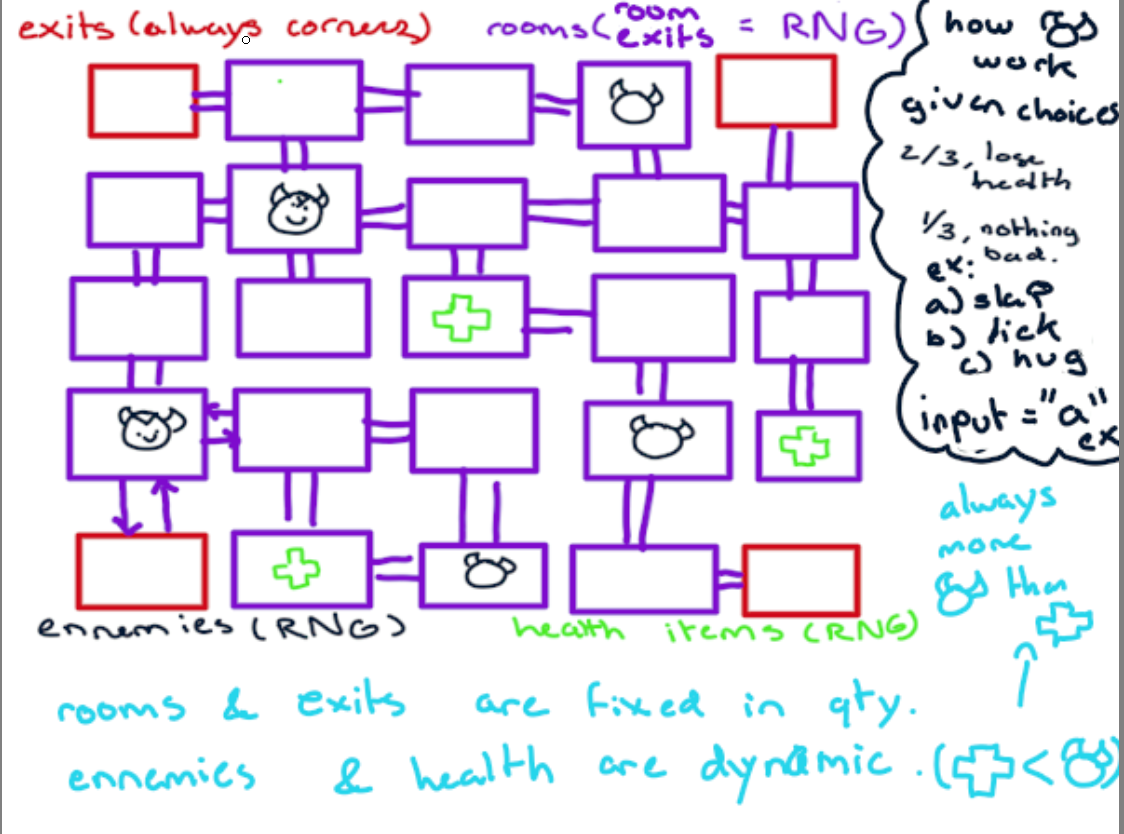 exits (always corners)
rooms (room exits = RNG)
how
work
given choices
2/3, lose
health
1/3, nothing
bad.
ex:
a) slap
b) lick
c) hug
input = "a"
ex
always
more
than
ennemies (RNG)
health items (RNG)
rooms & exits are fixed in qty.
ennemies & health are dynamic. ( < )